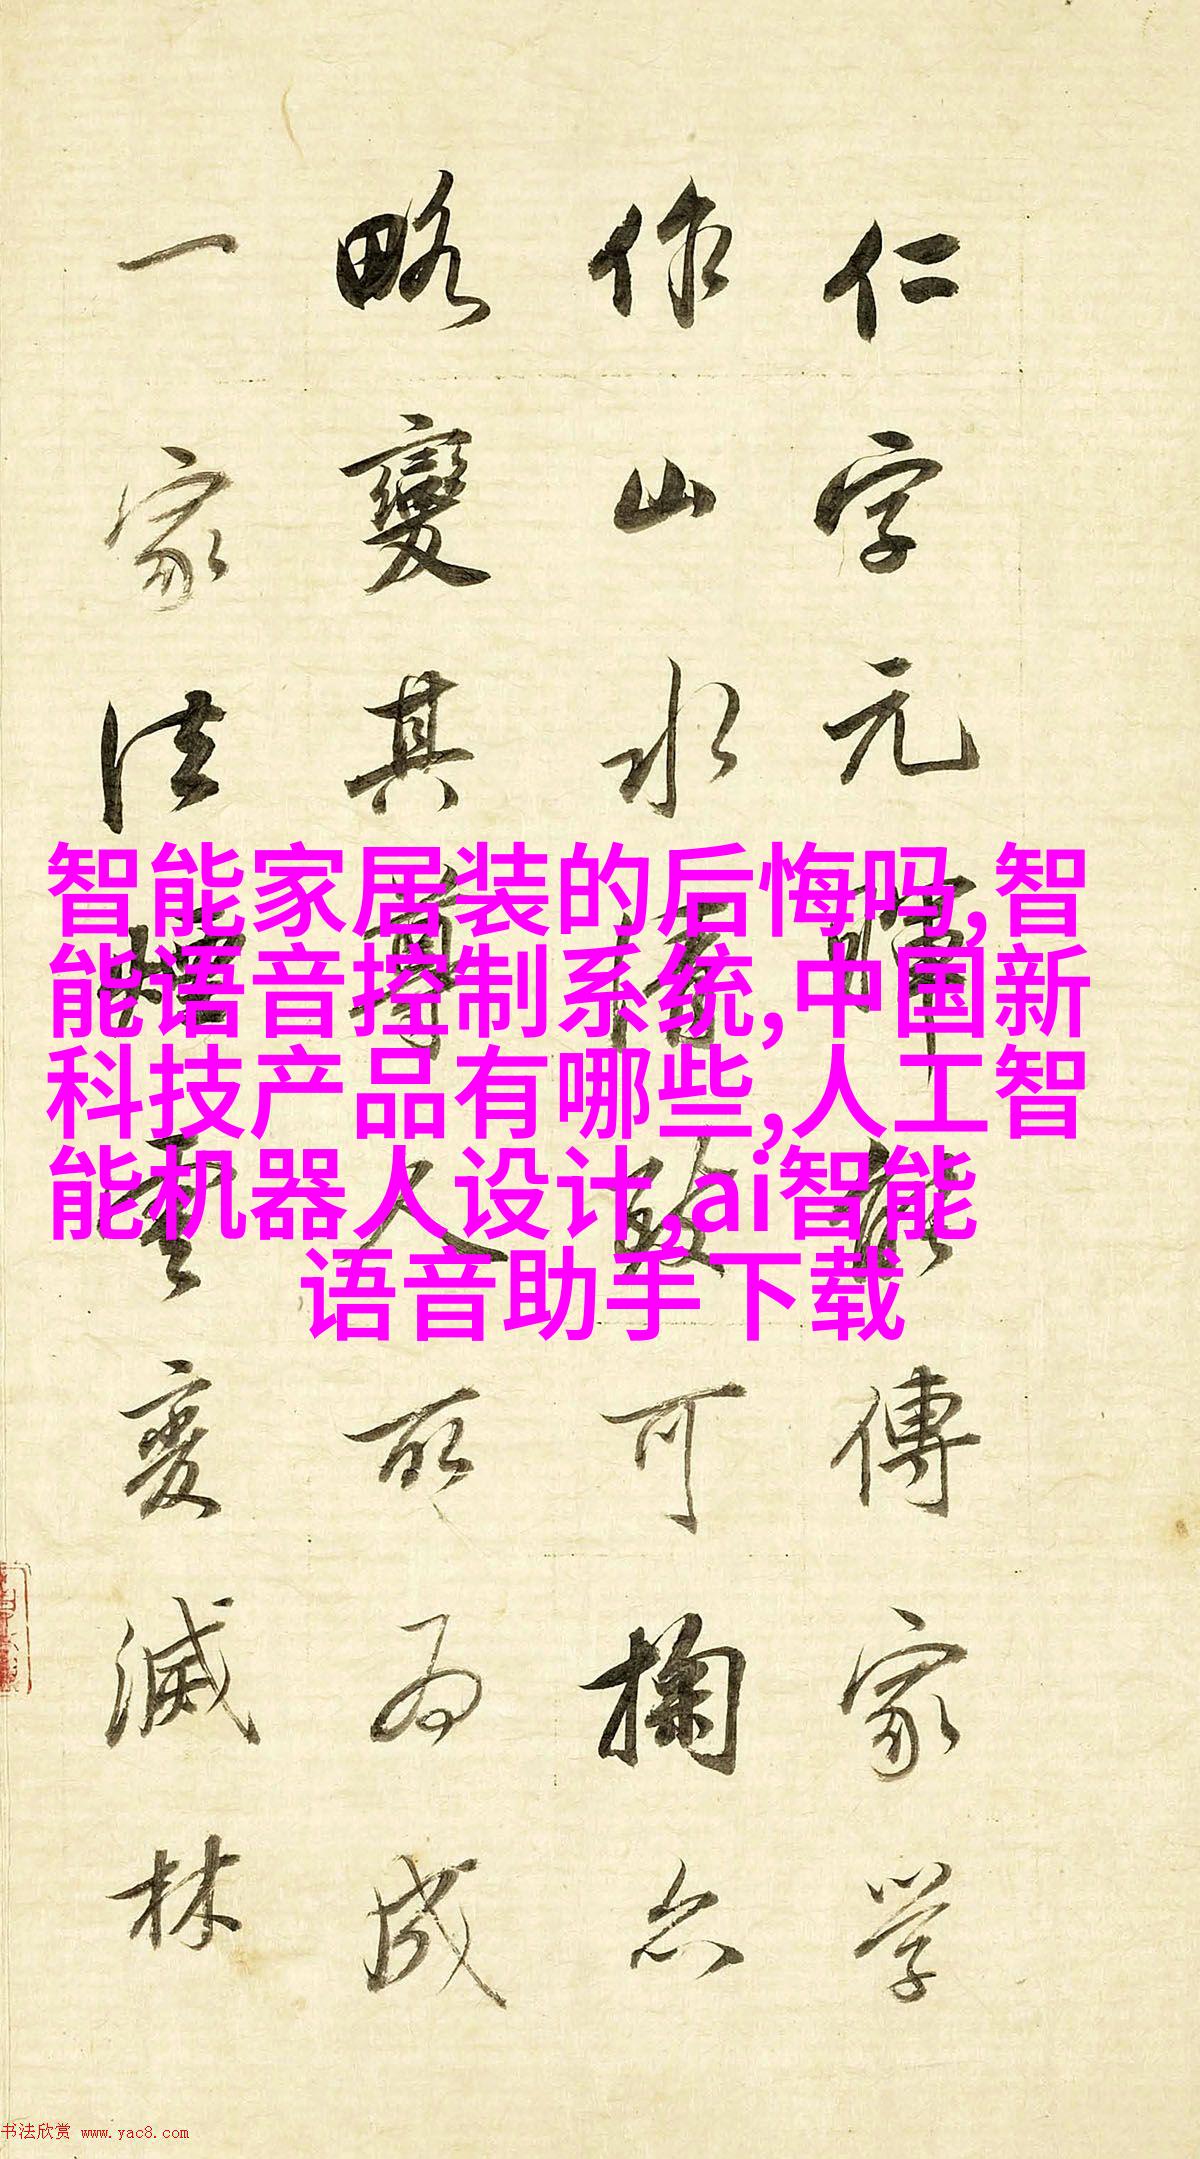 仁字元暉能傳家學
作山水清致可掬亦
略變其尊人所為成
一家法煙雲變滅林
智能家居装的后悔吗,智
能语音控制系统,中国新
科技产品有哪些,人工智
能机器人设计,ai智能
语音助手下载
书法欣赏 www.yac8.com